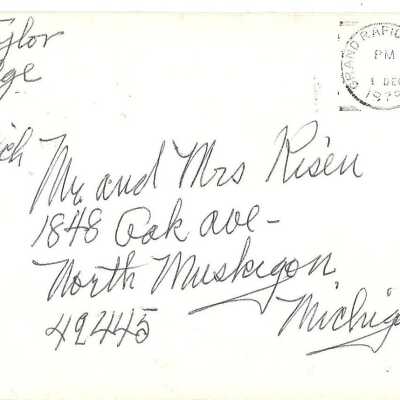 aylor
ge
ich
GRAND RAPID
PM
1 DEC
1979
Mr. and Mrs Risen
1848 Oak ave-
North Muskegon
Michiga
49445